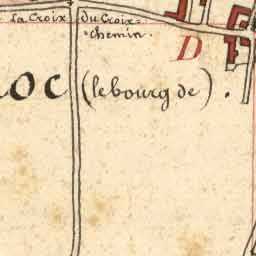 la Croix du Croix=
=chemin.
D
OC (le bourg de).